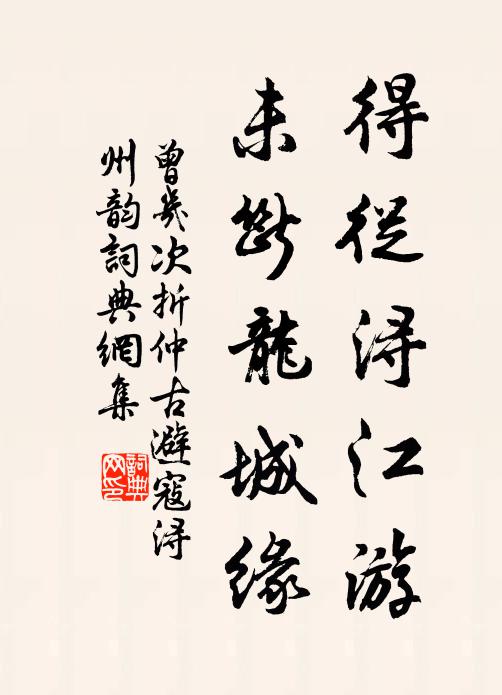 得從潯江游
未斷龍城緣
曾幾次折仲古避寇潯
州韵詞典網集
詞典網印